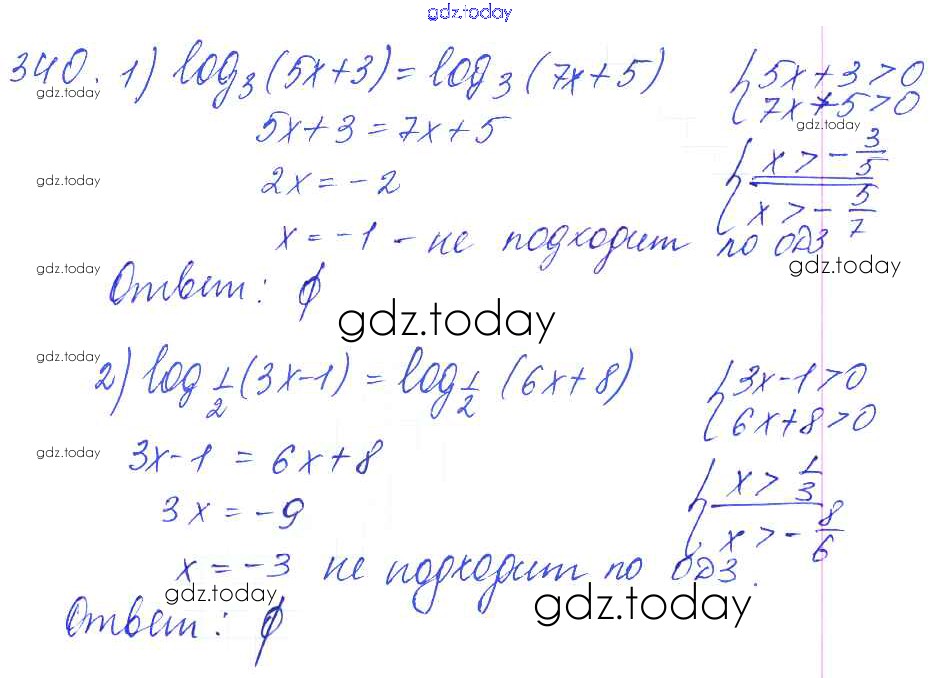 gdz.today
340. 1) log₃(5x+3) = log₃(7x+5) { 5x+3>0
7x+5>0
gdz.today gdz.today
5x+3 = 7x+5
{ x > -3/5
gdz.today
2x = -2
x > -5/7
x = -1 - не подходит по ОДЗ
gdz.today gdz.today
Ответ: ∅
gdz.today
gdz.today
2) log_{1/2}(3x-1) = log_{1/2}(6x+8) { 3x-1>0
6x+8>0
gdz.today
3x-1 = 6x+8
{ x > 1/3
3x = -9
x > -8/6
x = -3 не подходит по ОДЗ.
gdz.today gdz.today
Ответ: ∅